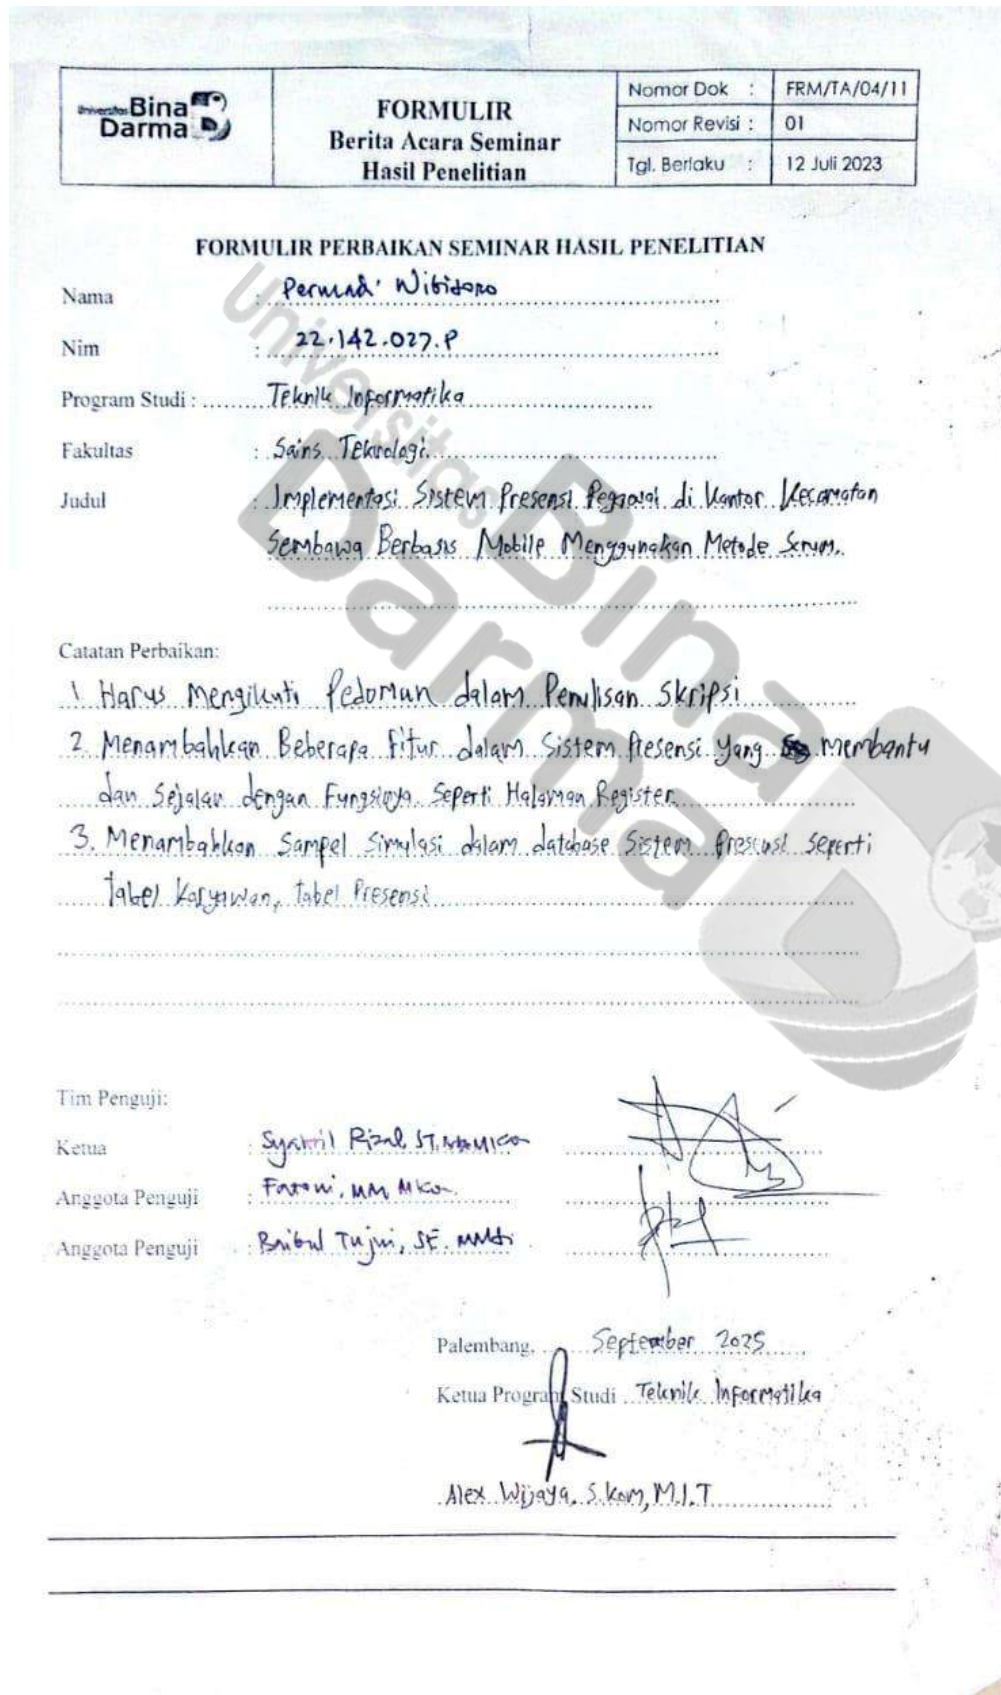 Universitas Bina Darma
FORMULIR
Berita Acara Seminar
Hasil Penelitian
Nomor Dok : FRM/TA/04/11
Nomor Revisi : 01
Tgl. Berlaku : 12 Juli 2023
FORMULIR PERBAIKAN SEMINAR HASIL PENELITIAN
Nama : Permadi Wibisono
Nim : 22.142.027.P
Program Studi : Teknik Informatika
Fakultas : Sains Teknologi
Judul : Implementasi Sistem Presensi Pegawai di Kantor Kecamatan
Sembawa Berbasis Mobile Menggunakan Metode Scrum.
Catatan Perbaikan:
1 Harus Mengikuti Pedoman dalam Penulisan Skripsi
2. Menambahkan Beberapa Fitur dalam Sistem Presensi yang Membantu
dan Sejalan dengan Fungsinya. Seperti Halaman Register
3. Menambahkan Sampel Simulasi dalam database Sistem Presensi seperti
tabel Karyawan, tabel Presensi
Universitas
Bina
Darma
Tim Penguji:
Ketua : Syahril Rizal ST.
Anggota Penguji : Fatoni, MM, MKom.
Anggota Penguji : Baibul Tujni, SE. MMSi
Palembang, September 2025
Ketua Program Studi Teknik Informatika
Alex Wijaya, S.Kom, M.I.T